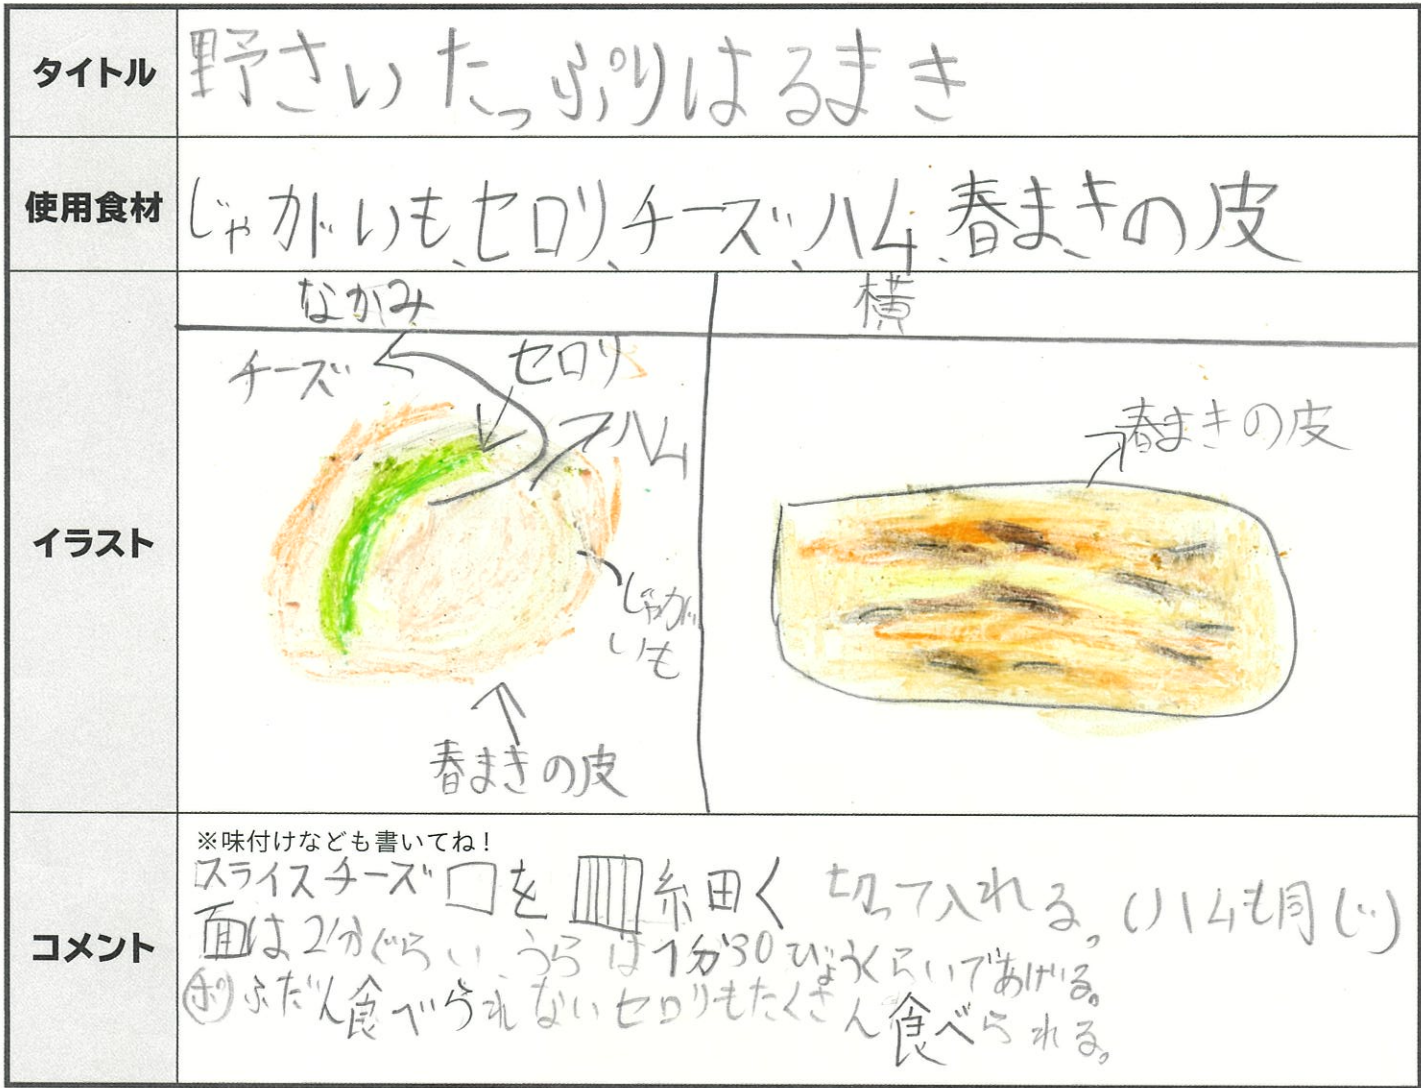 タイトル
野さいたっぷりはるまき
使用食材
じゃがいも、セロリ、チーズ、ハム、春まきの皮
イラスト
なかみ
チーズ
セロリ
ハム
じゃが
いも
春まきの皮
横
春まきの皮
コメント
※味付けなども書いてね!
スライスチーズ□を▥細く切って入れる。(ハムも同じ)
面は2分ぐらい、うらは1分30びょうくらいであげる。
ポふだん食べられないセロリもたくさん食べられる。